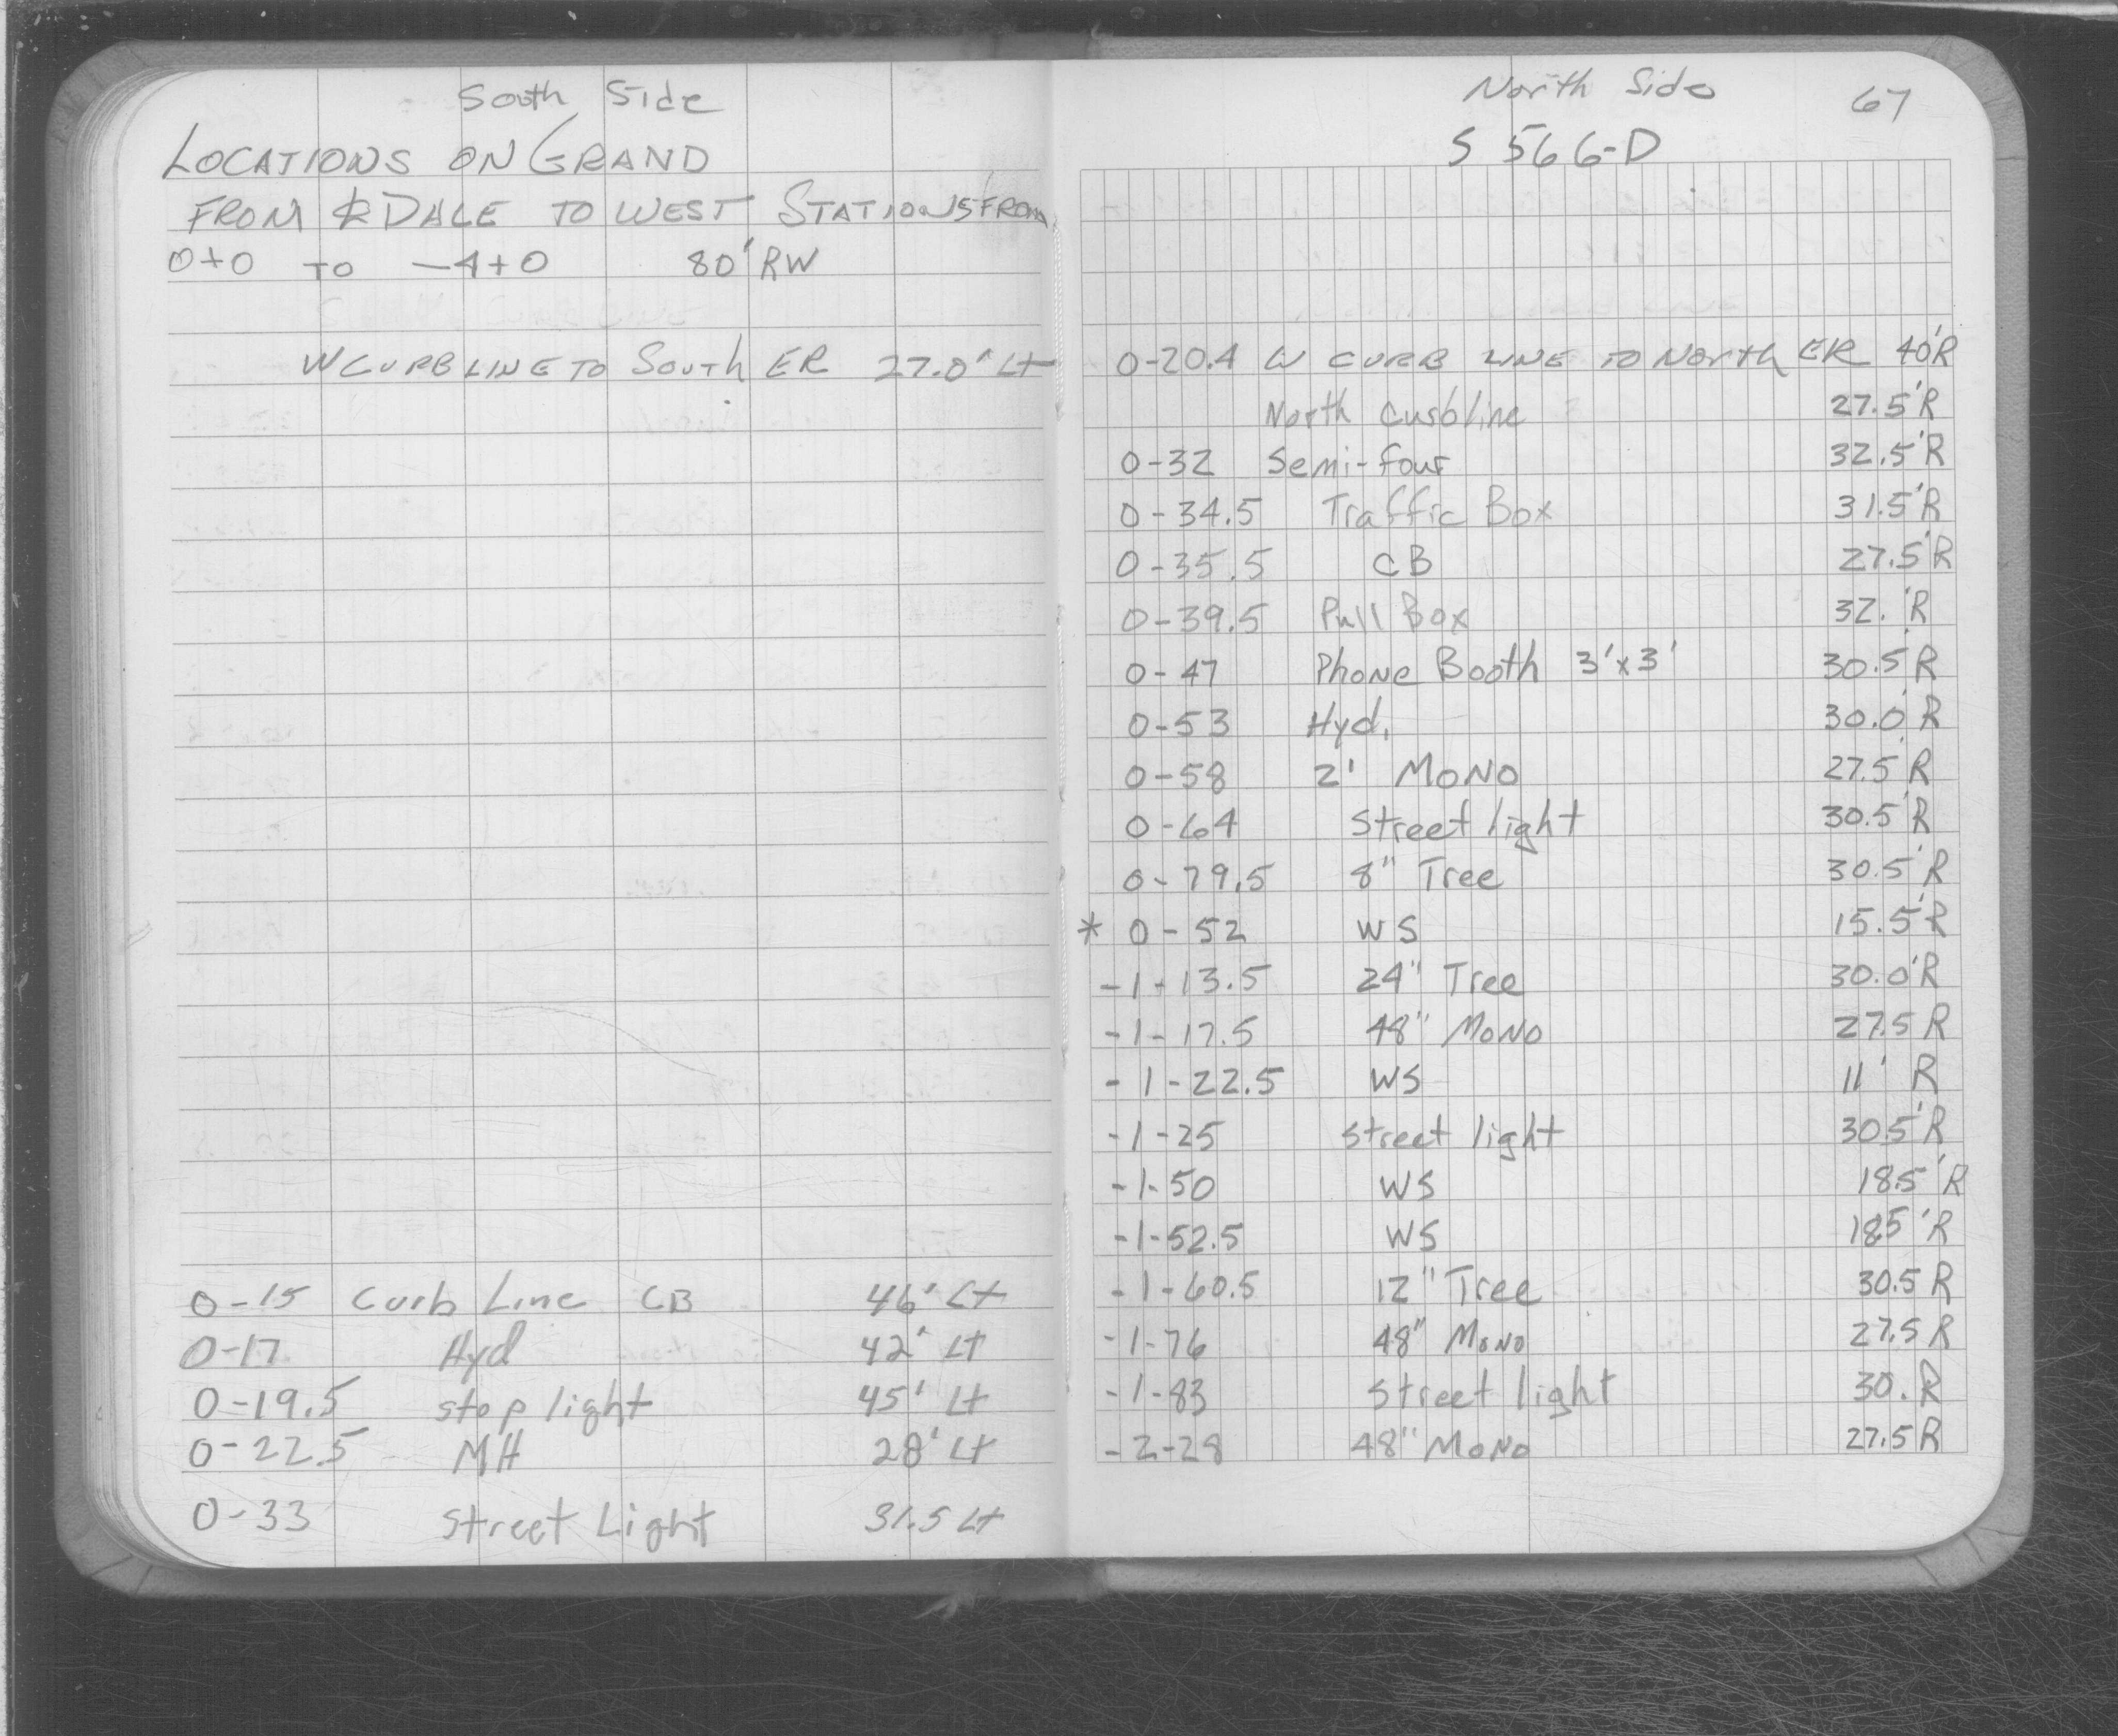 South Side
LOCATIONS ON GRAND
FROM ℄ DALE TO WEST STATIONS FROM
0+0 TO -4+0 80' RW
W CURB LINE TO South ER 27.0' Lt
0-15 Curb Line CB 46' Lt
0-17 Hyd 42' Lt
0-19.5 stop light 45' Lt
0-22.5 MH 28' Lt
0-33 street Light 31.5 Lt
North Side 67
S 566-D
0-20.4 W CURB LINE TO North ER 40'R
North Curbline 27.5'R
0-32 Semi-four 32.5'R
0-34.5 Traffic Box 31.5'R
0-35.5 CB 27.5'R
0-39.5 Pull Box 32.'R
0-47 Phone Booth 3'x3' 30.5'R
0-53 Hyd. 30.0'R
0-58 2' MONO 27.5'R
0-64 street light 30.5'R
0-79.5 8" Tree 30.5'R
* 0-52 WS 15.5'R
-1-13.5 24" Tree 30.0'R
-1-17.5 48" MONO 27.5 R
-1-22.5 WS 11' R
-1-25 street light 30.5'R
-1-50 WS 18.5'R
-1-52.5 WS 18.5'R
-1-60.5 12" Tree 30.5 R
-1-76 48" MONO 27.5 R
-1-83 street light 30. R
-2-28 48" MONO 27.5 R